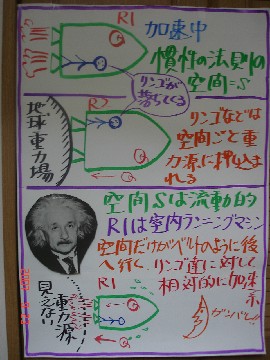 R1
加速中
慣性の法則の
空間=S
リンゴが
落ちてくる
R2
地球重力場
リンゴなどは
空間ごと重
力源に押込ま
れる
空間Sは流動的
R1は室内ランニングマシン
空間だけがベルトのように後
へ行く.リンゴ達に対して
R1
相対的に加速
示
ガッビーン!!
見えない
重力源